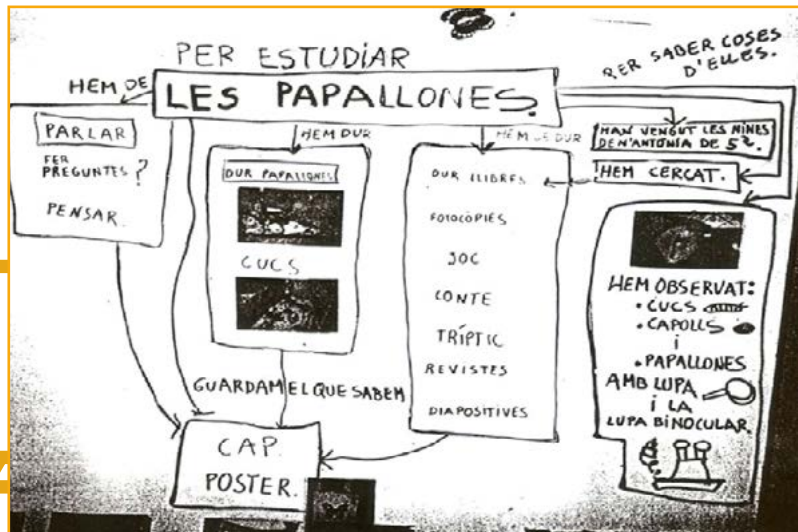 PER ESTUDIAR
LES PAPALLONES.
PER SABER COSES
D'ELLES.
HEM DE
PARLAR
FER
PREGUNTES?
PENSAR
HEM DUR
DUR PAPALLONES
CUCS
HEM DE DUR
DUR LLIBRES
FOTOCÒPIES
JOC
CONTE
TRÍPTIC
REVISTES
DIAPOSITIVES
HAN VENGUT LES NINES
DE N'ANTONIA DE 5È.
HEM CERCAT.
HEM OBSERVAT:
• CUCS
• CAPOLLS
i
• PAPALLONES
AMB LUPA
i LA
LUPA BINOCULAR
GUARDAM EL QUE SABEM
CAP
POSTER.